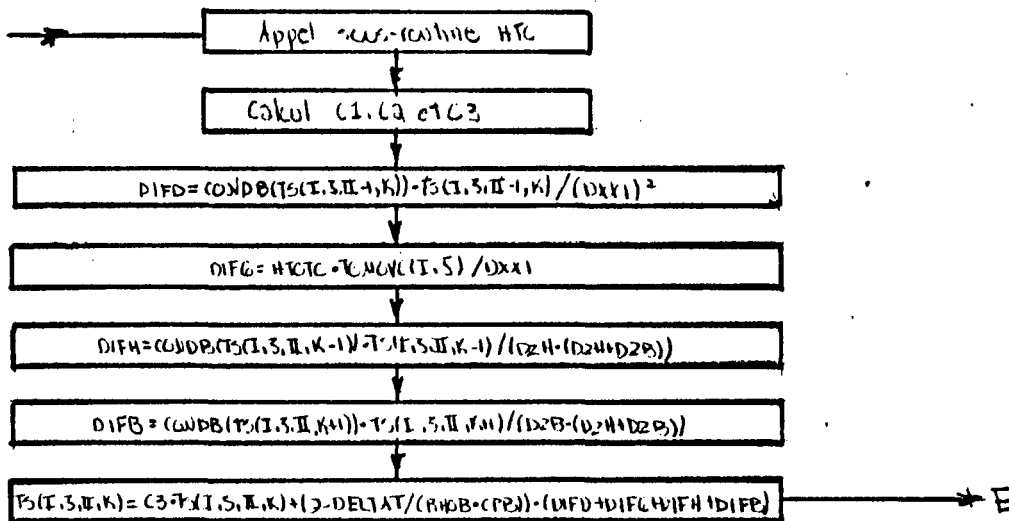 Appel sous-routine HTC
Calcul C1, C2 et C3
DIFD=CONDB(TS(I,3,II-1,K))·TS(I,3,II-1,K)/(DXX1)²
DIFG=HTCTC·TCNOUV(I,5)/DXX1
DIFH=CONDB(TS(I,3,II,K-1))·TS(I,3,II,K-1)/(DZH·(DZH+DZB))
DIFB=CONDB(TS(I,3,II,K+1))·TS(I,3,II,K+1)/(DZB·(DZH+DZB))
TS(I,3,II,K)=C3·TS(I,3,II,K)+(2·DELTAT/(RHOB·CPB))·(DIFD+DIFG+DIFH+DIFB)
E